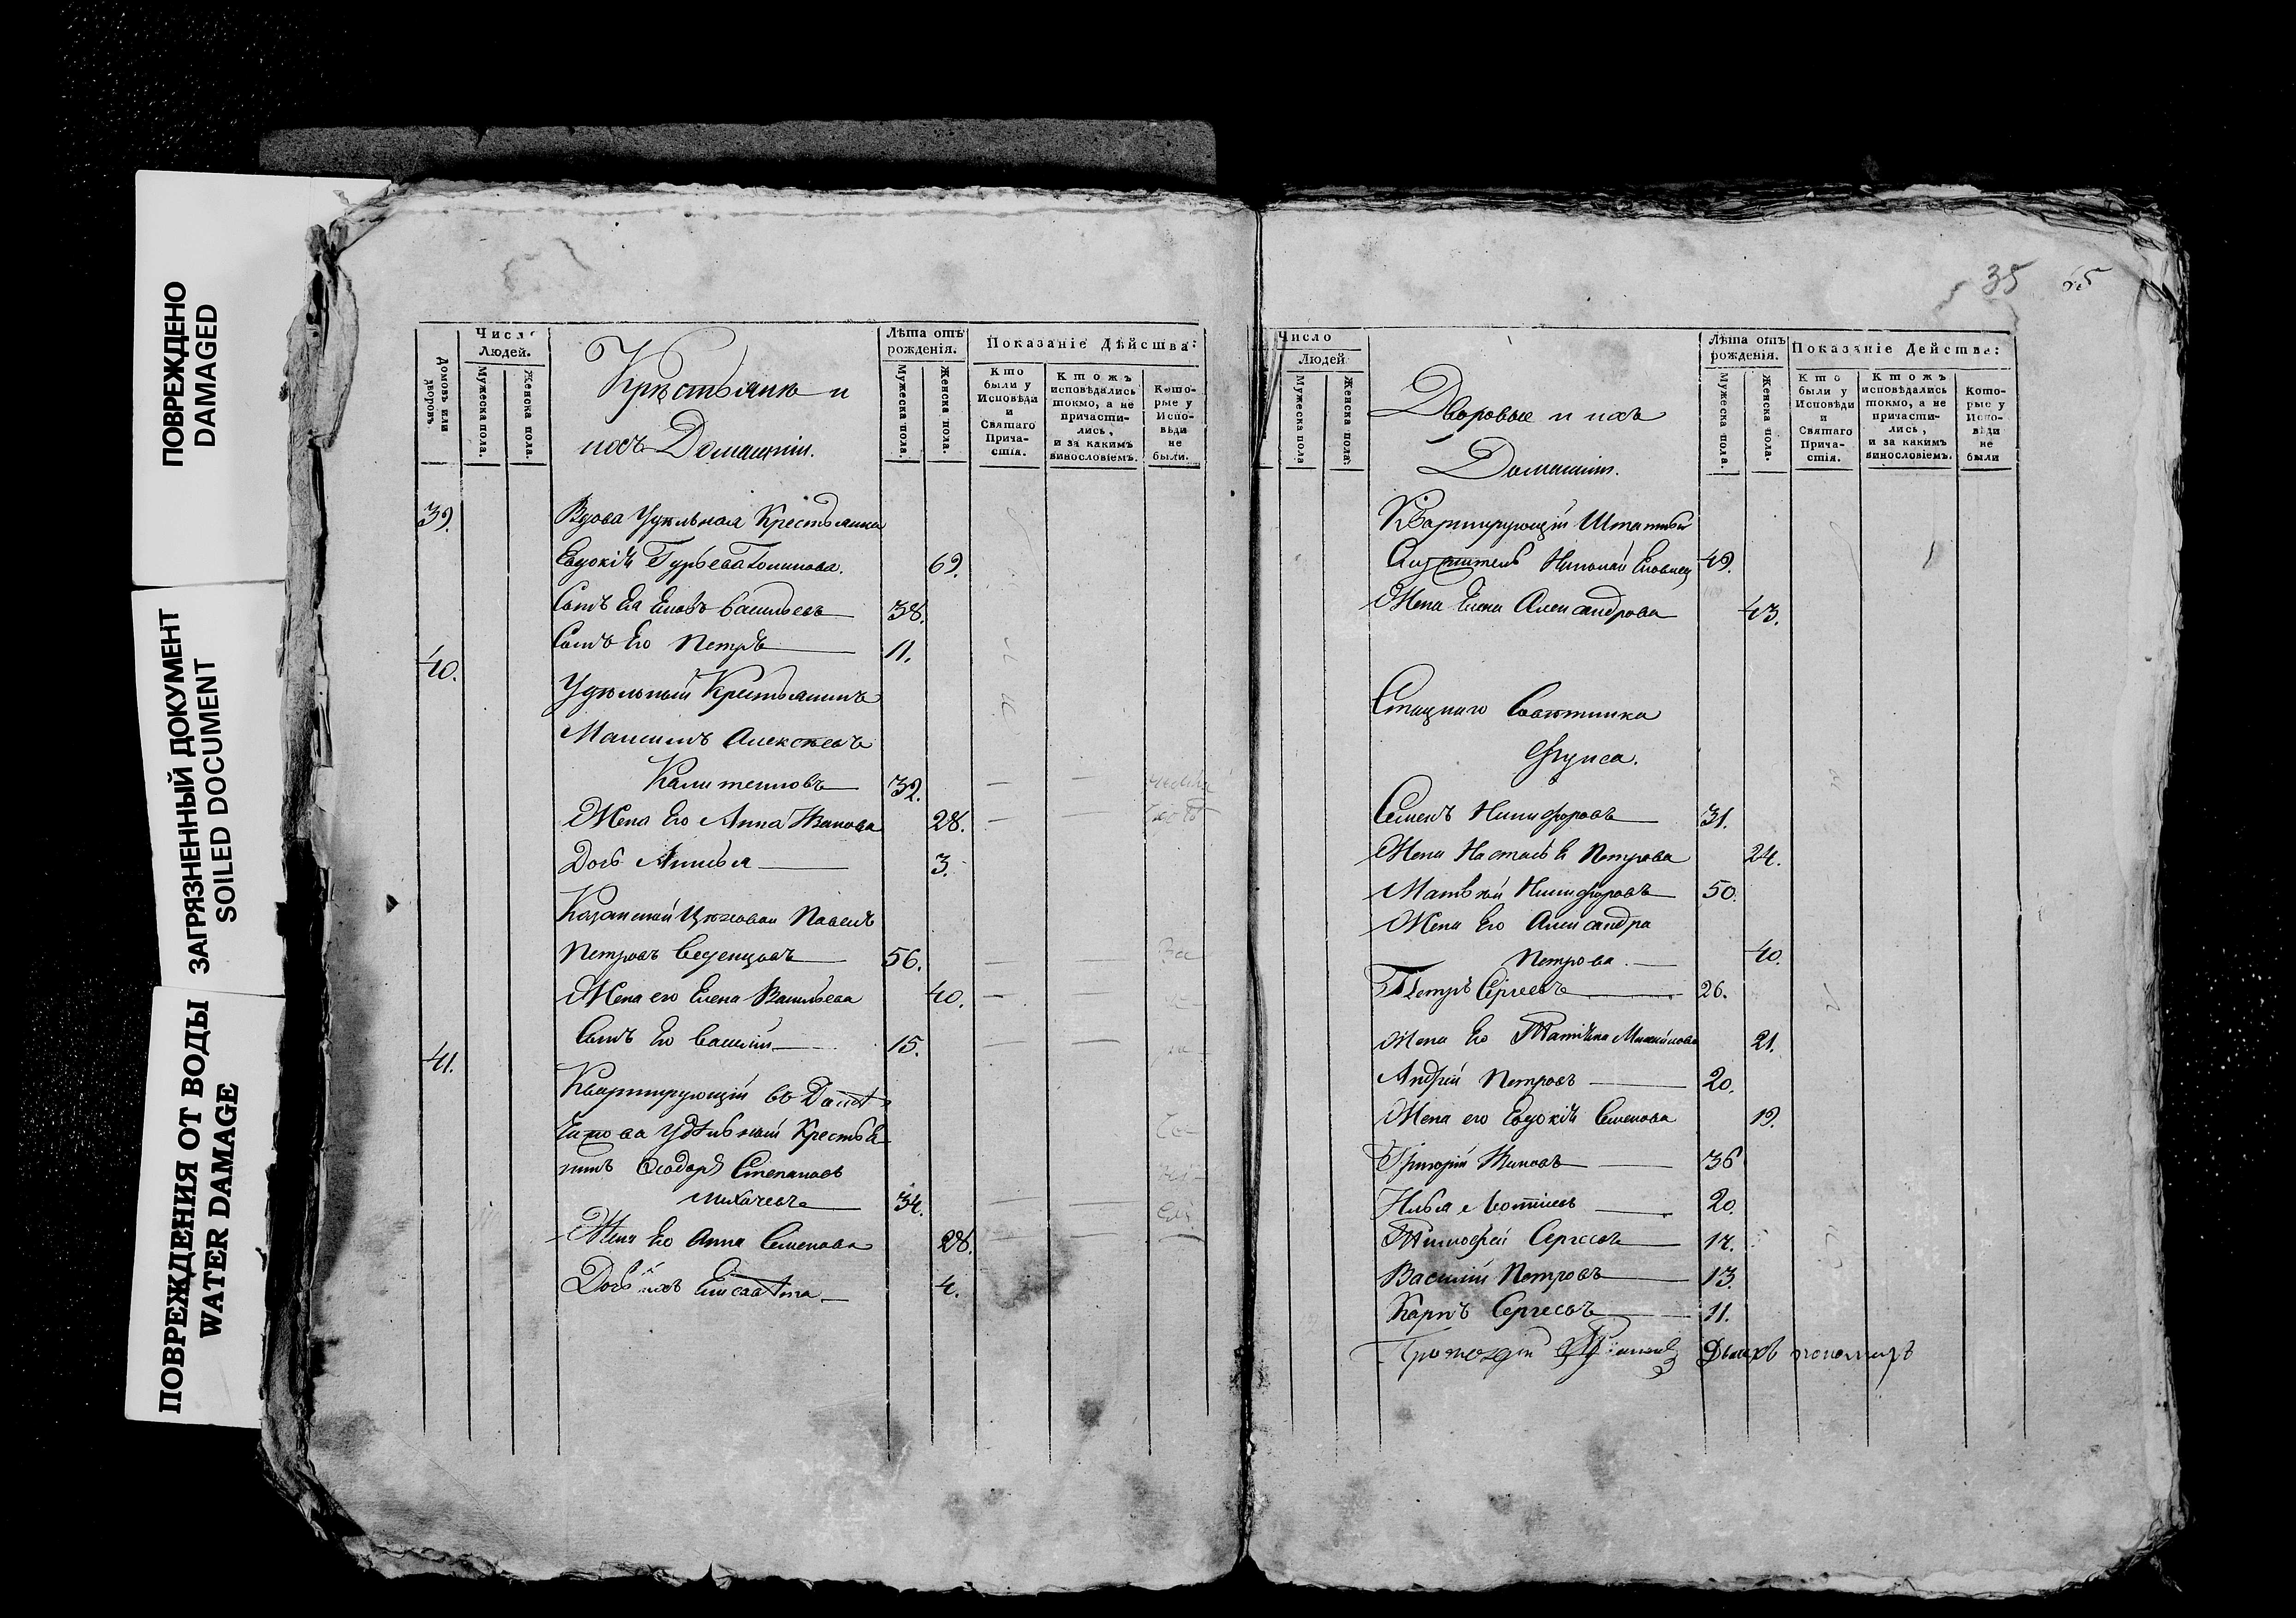 ПОВРЕЖДЕНО
DAMAGED
ЗАГРЯЗНЕННЫЙ ДОКУМЕНТ
SOILED DOCUMENT
ПОВРЕЖДЕНИЯ ОТ ВОДЫ
WATER DAMAGE
Домовъ или дворовъ
Число Людей.
Мужеска пола.
Женска пола.
Крестьяне и
ихъ Домашніи.
Лѣта отъ рожденія.
Мужеска пола.
Женска пола.
Показаніе Дѣйства:
Кто были у Исповѣди и Святаго Прича-стія.
Ктожъ исповѣдались токмо, а не причасти-лись, и за какимъ винословіемъ.
Кото-рые у Испо-вѣди не были.
39. Вдова Удѣльная Крестьянка
Евдокія Гурьева 69.
Сынъ Ея Васильевъ 38.
Сынъ Его Петръ 11.
40.
Удѣльный Крестьянинъ
Максимъ Алексѣевъ
32.
Жена Его Анна Иванова 28.
Дочь 3.
Казанской Цѣховой Павелъ
Петровъ 56.
Жена его Елена Васильева 40.
Сынъ Его Василій 15.
41.
Квартирующій въ Домѣ
Удѣльный Крестья
нинъ Ѳеодоръ Степановъ
34.
Жена Его Анна Семенова 28.
Дочь ихъ Елисавета 4.
35 65
Число
Людей
Мужеска пола
Женска пола.
Дворовые и ихъ
Домашніи.
Лѣта отъ рожденія.
Мужеска пола.
Женска пола.
Показаніе Действа:
Кто были у Исповѣди и Святаго Прича-стія.
Ктожъ исповѣдались токмо, а не причасти-лись, и за какимъ винословіемъ.
Кото-рые у Испо-вѣди не были
Квартирующій Штатный
Служитель Николай 49.
Жена Елена Александрова 43.
Стацкаго Совѣтника
Фукса.
Семенъ Никифоровъ 31.
Жена Настасья Петрова 24.
Матвѣй Никифоровъ 50.
Жена Его Александра
Петрова 40.
Петръ Сергеевъ 26.
Жена Его 21.
Андрей Петровъ 20.
Жена его Евдокія Семенова 19.
Григорій Ивановъ 36
Илья 20.
Тимофей Сергеевъ 17.
Василій Петровъ 13.
Карпъ Сергеевъ 11.